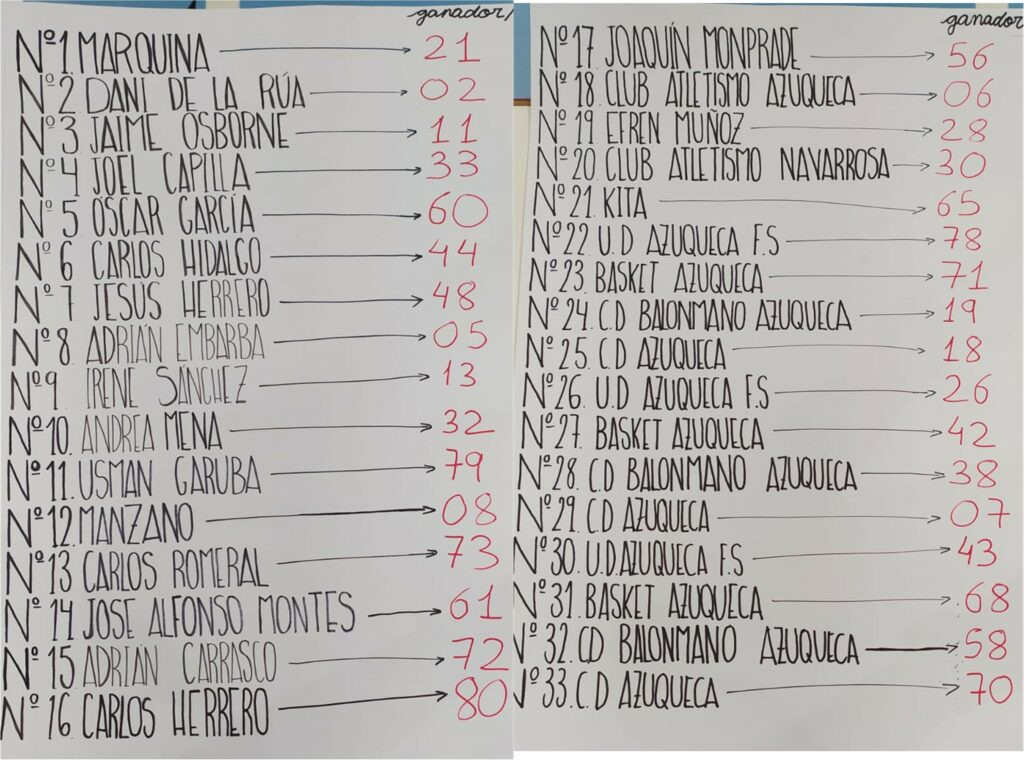 ganador/
Nº1. MARQUINA → 21
Nº2 DANI DE LA RÚA → 02
Nº3 JAIME OSBORNE → 11
Nº4 JOEL CAPILLA → 33
Nº5 ÓSCAR GARCÍA → 60
Nº6 CARLOS HIDALGO → 44
Nº7 JESÚS HERRERO → 48
Nº8. ADRIÁN EMBARBA → 05
Nº9. IRENE SÁNCHEZ → 13
Nº10. ANDREA MENA → 32
Nº11. USMAN GARUBA → 79
Nº12. MANZANO → 08
Nº13 CARLOS ROMERAL → 73
Nº14 JOSE ALFONSO MONTES → 61
Nº15 ADRIÁN CARRASCO → 72
Nº16. CARLOS HERRERO → 80
ganador
Nº17. JOAQUÍN MONPRADE → 56
Nº18. CLUB ATLETISMO AZUQUECA → 06
Nº19. EFREN MUÑOZ → 28
Nº20. CLUB ATLETISMO NAVARROSA → 30
Nº21. KITA → 65
Nº22. U.D AZUQUECA F.S → 78
Nº23. BASKET AZUQUECA → 71
Nº24. C.D BALONMANO AZUQUECA → 19
Nº25. C.D AZUQUECA → 18
Nº26. U.D AZUQUECA F.S → 26
Nº27. BASKET AZUQUECA → 42
Nº28. C.D BALONMANO AZUQUECA → 38
Nº29. C.D AZUQUECA → 07
Nº30. U.D.AZUQUECA F.S → 43
Nº31. BASKET AZUQUECA → 68
Nº32. CD BALONMANO AZUQUECA → 58
Nº33. C.D AZUQUECA → 70